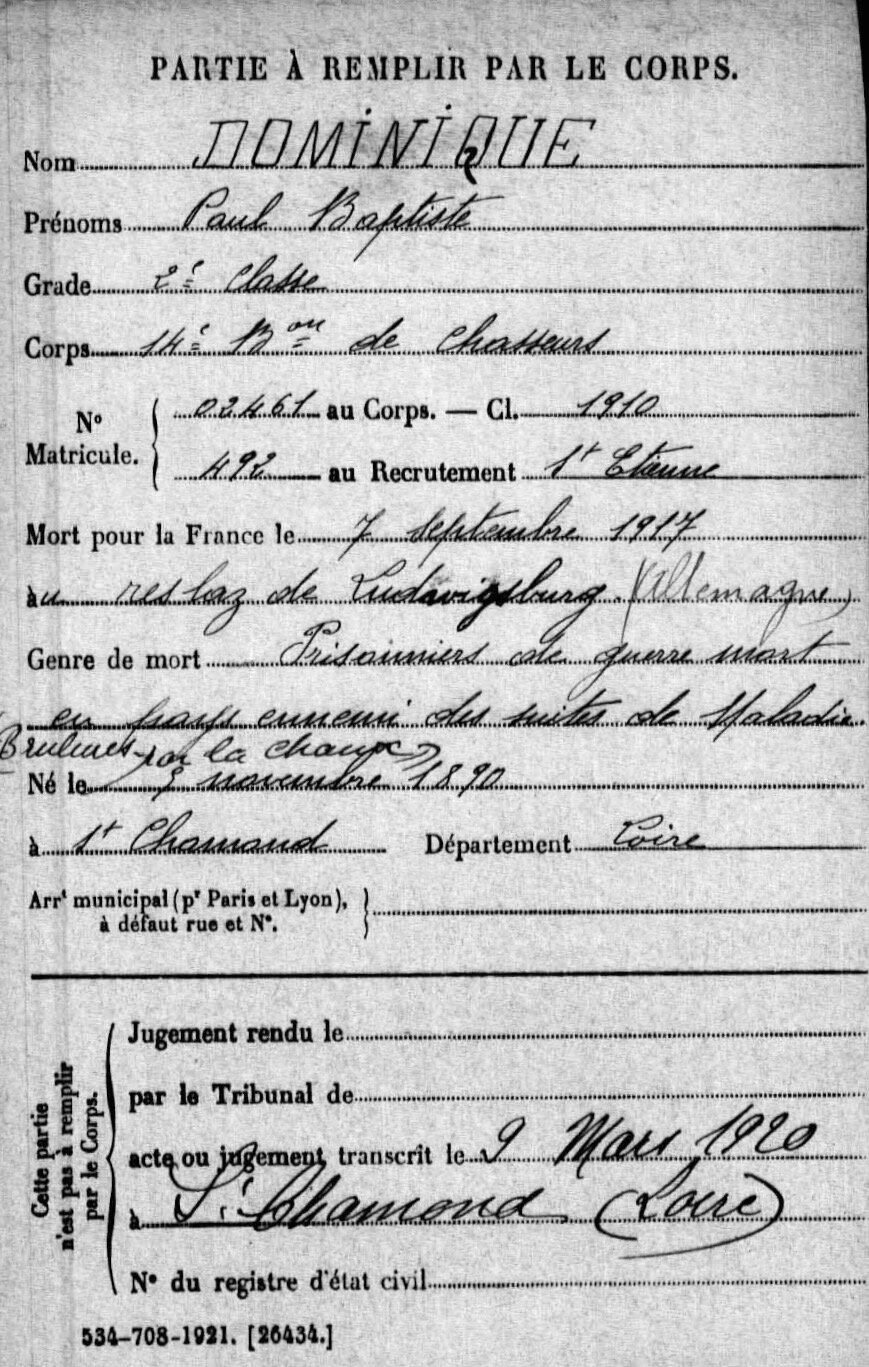 PARTIE À REMPLIR PAR LE CORPS.
Nom DOMINIQUE
Prénoms Paul Baptiste
Grade 2e classe
Corps 14e Bon de Chasseurs
No Matricule. 02461 au Corps. — Cl. 1910
492 au Recrutement St Etienne
Mort pour la France le 7 Septembre 1917
au reslaz de Ludwigsburg (Allemagne)
Genre de mort Prisonniers de guerre mort
en pays ennemi des suites de Maladie.
(Brulures par la chaux)
Né le 9 novembre 1890
à St Chamand Département Loire
Arrt municipal (pr Paris et Lyon),
à défaut rue et No.
Cette partie
n'est pas à remplir
par le Corps.
Jugement rendu le
par le Tribunal de
acte ou jugement transcrit le 9 Mars 1920
à St Chamond (Loire)
No du registre d'état civil
534-708-1921. [26434.]